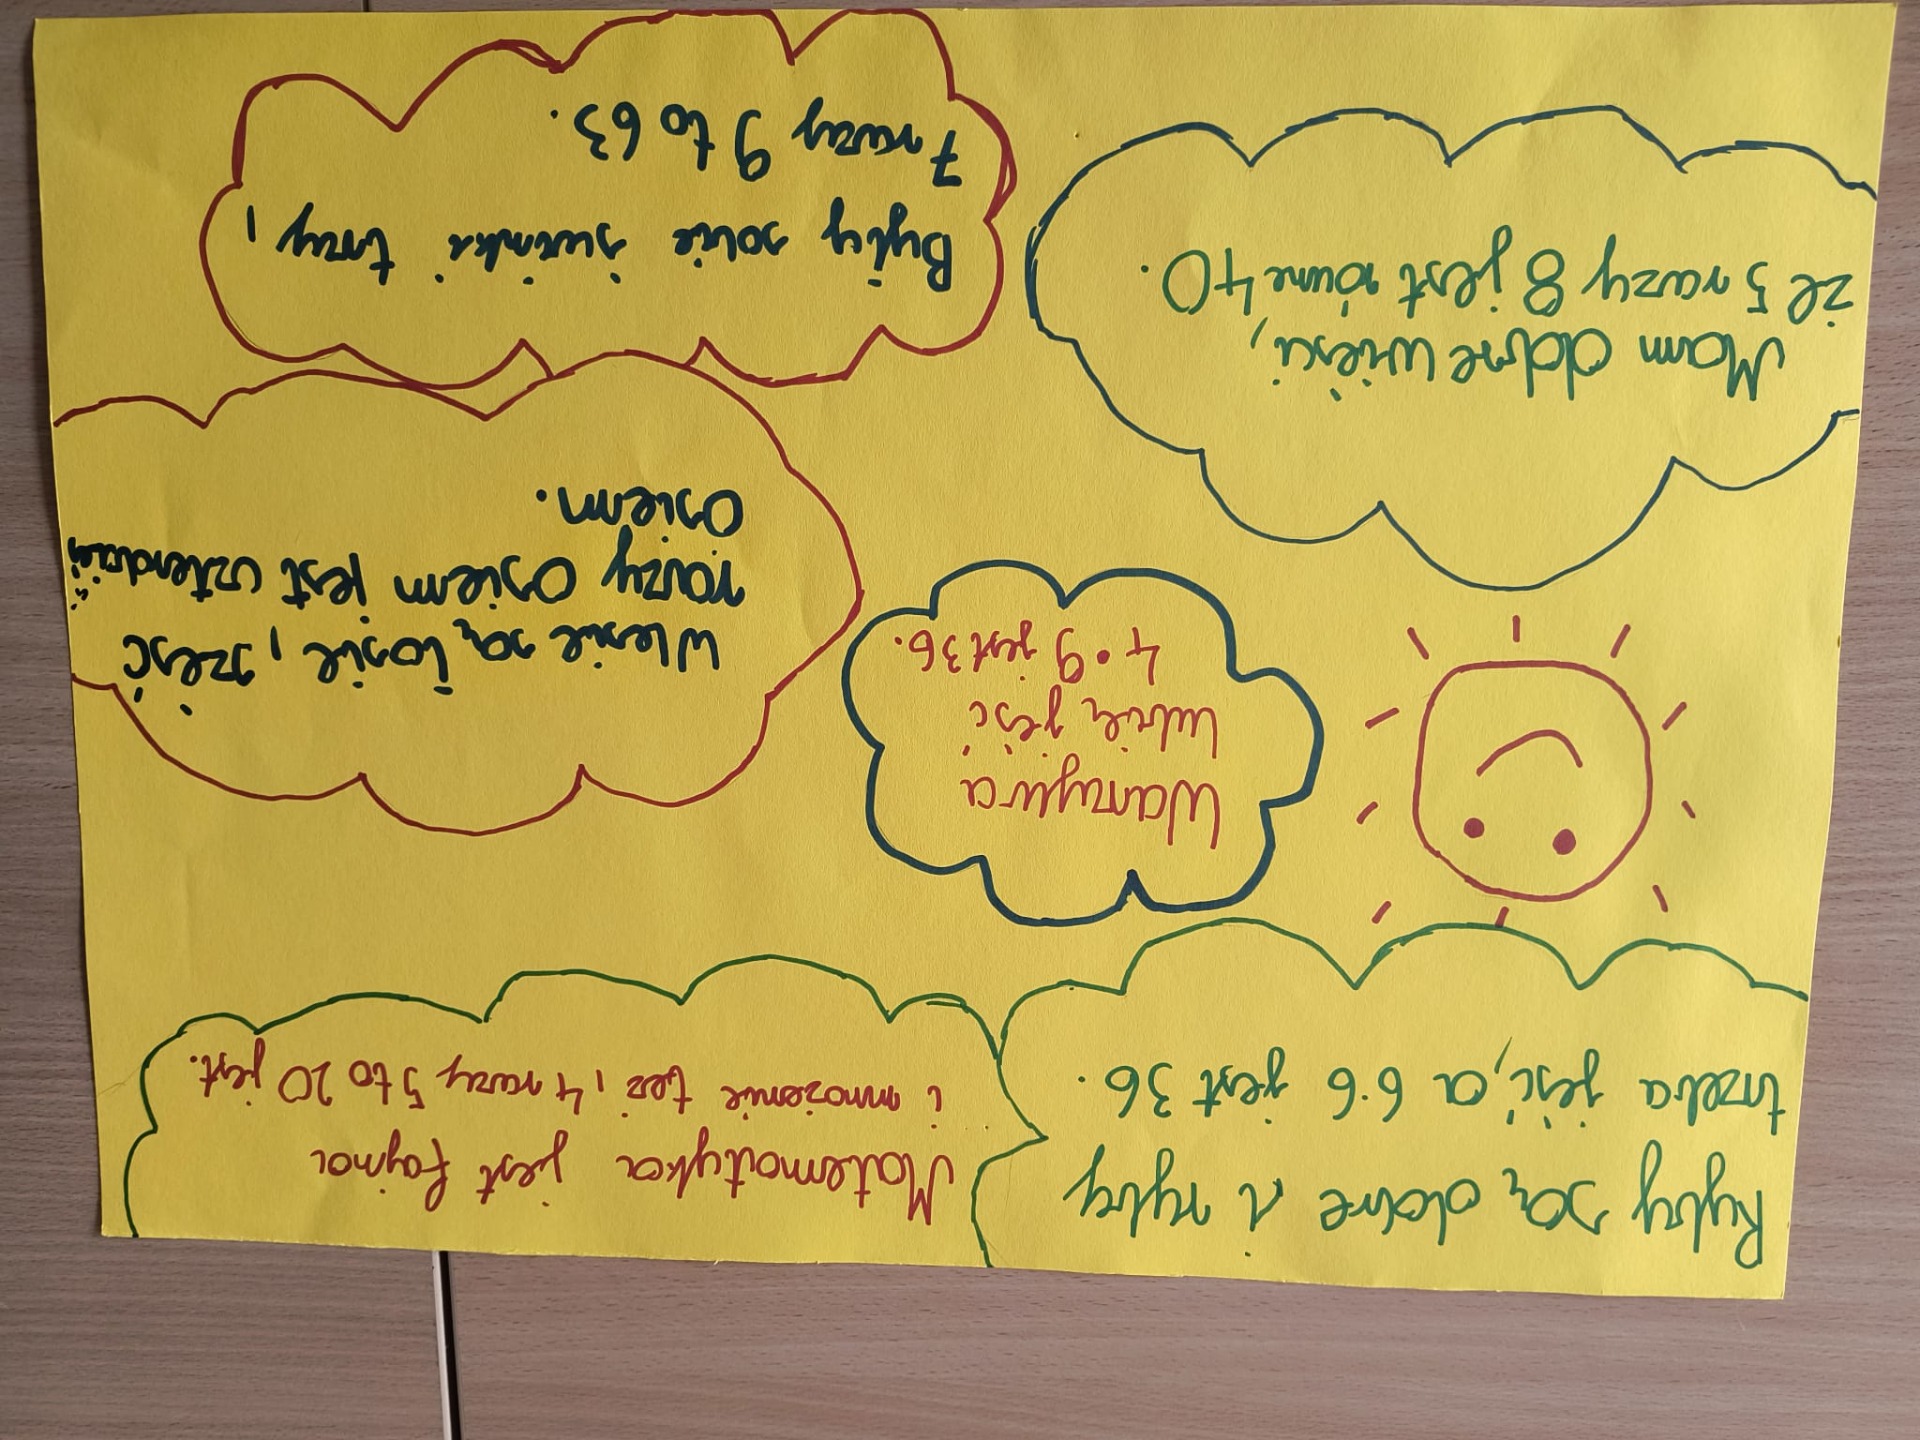 Ryby są dobre i ryby
trzeba jeść, a 6·6 jest 36.
Matematyka jest fajna
i mnożenie też, 4 razy 5 to 20 jest.
Warzywa
lubię jeść
4·9 jest 36.
W lesie są łosie, sześć
razy osiem jest czterdzieści
osiem.
Mam dobre wieści,
że 5 razy 8 jest równe 40.
Były sobie świnki trzy,
7 razy 9 to 63.